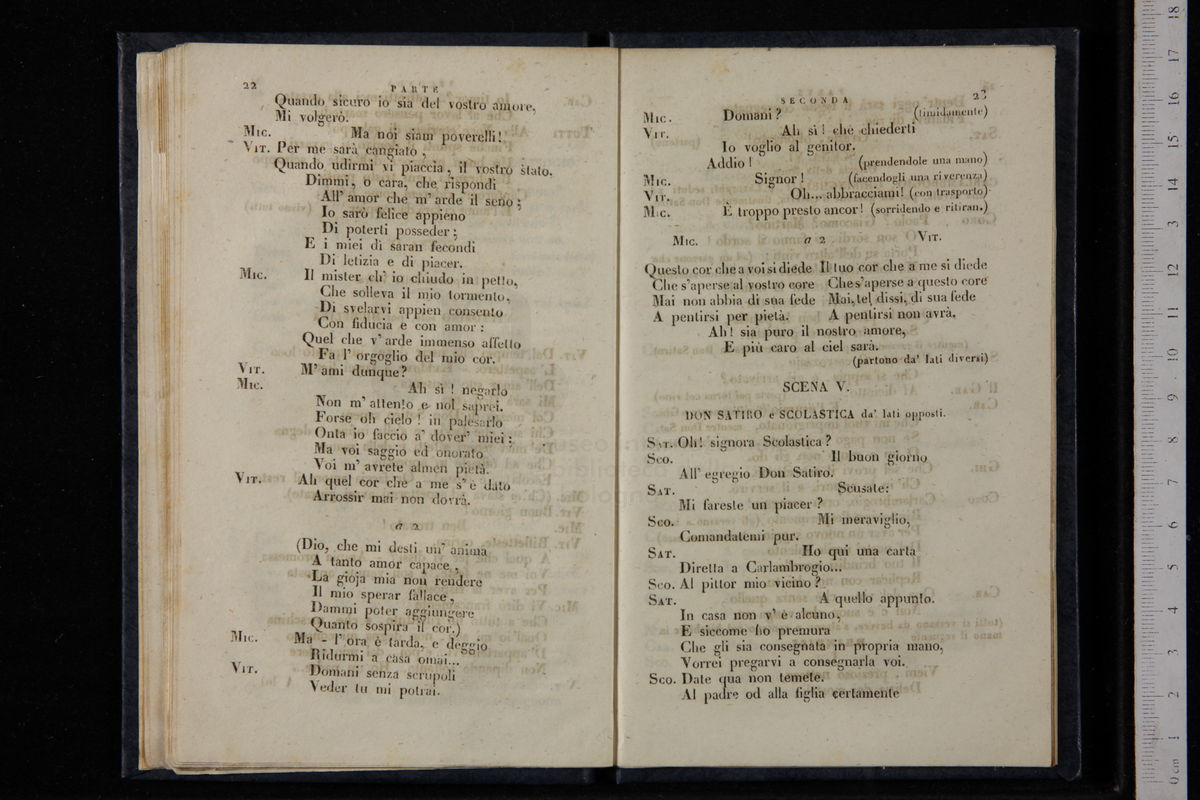 22
PARTE
Quando sicuro io sia del vostro amore,
Mi volgerò.
MIC. Ma noi siam poverelli!
VIT. Per me sarà cangiato,
Quando udirmi vi piaccia, il vostro stato.
Dimmi, o cara, che rispondi
All' amor che m' arde il seno;
Io sarò felice appieno
Di poterti posseder;
E i miei dì saran fecondi
Di letizia e di piacer.
MIC. Il mister ch' io chiudo in petto,
Che solleva il mio tormento,
Di svelarvi appien consento
Con fiducia e con amor:
Quel che v' arde immenso affetto
Fa l' orgoglio del mio cor.
VIT. M' ami dunque?
MIC. Ah sì! negarlo
Non m' attento e nol saprei.
Forse oh cielo! in palesarlo
Onta io faccio a' dover' miei;
Ma voi saggio ed onorato
Voi m' avrete almen pietà.
VIT. Ah quel cor che a me s' è dato
Arrossir mai non dovrà.
a 2
(Dio, che mi desti un' anima
A tanto amor capace,
La gioja mia non rendere
Il mio sperar fallace,
Dammi poter aggiungere
Quanto sospira il cor.)
MIC. Ma - l' ora è tarda, e deggio
Ridurmi a casa omai...
VIT. Domani senza scrupoli
Veder tu mi potrai.
SECONDA
23
MIC. Domani? (timidamente)
VIT. Ah sì! che chiederti
Io voglio al genitor.
Addio! (prendendole una mano)
MIC. Signor! (facendogli una riverenza)
VIT. Oh... abbracciami! (con trasporto)
MIC. È troppo presto ancor! (sorridendo e ritiran.)
MIC. a 2 VIT.
Questo cor che a voi si diede Il tuo cor che a me si diede
Che s'aperse al vostro core Che s'aperse a questo core
Mai non abbia di sua fede Mai, tel dissi, di sua fede
A pentirsi per pietà. A pentirsi non avrà.
Ah! sia puro il nostro amore,
E più caro al ciel sarà.
(partono da' lati diversi)
SCENA V.
DON SATIRO e SCOLASTICA da' lati opposti.
SAT. Oh! signora Scolastica?
SCO. Il buon giorno
All' egregio Don Satiro.
SAT. Scusate:
Mi fareste un piacer?
SCO. Mi meraviglio,
Comandatemi pur.
SAT. Ho qui una carta
Diretta a Carlambrogio...
SCO. Al pittor mio vicino?
SAT. A quello appunto.
In casa non v' è alcuno,
E siccome ho premura
Che gli sia consegnata in propria mano,
Vorrei pregarvi a consegnarla voi.
SCO. Date qua non temete.
Al padre od alla figlia certamente